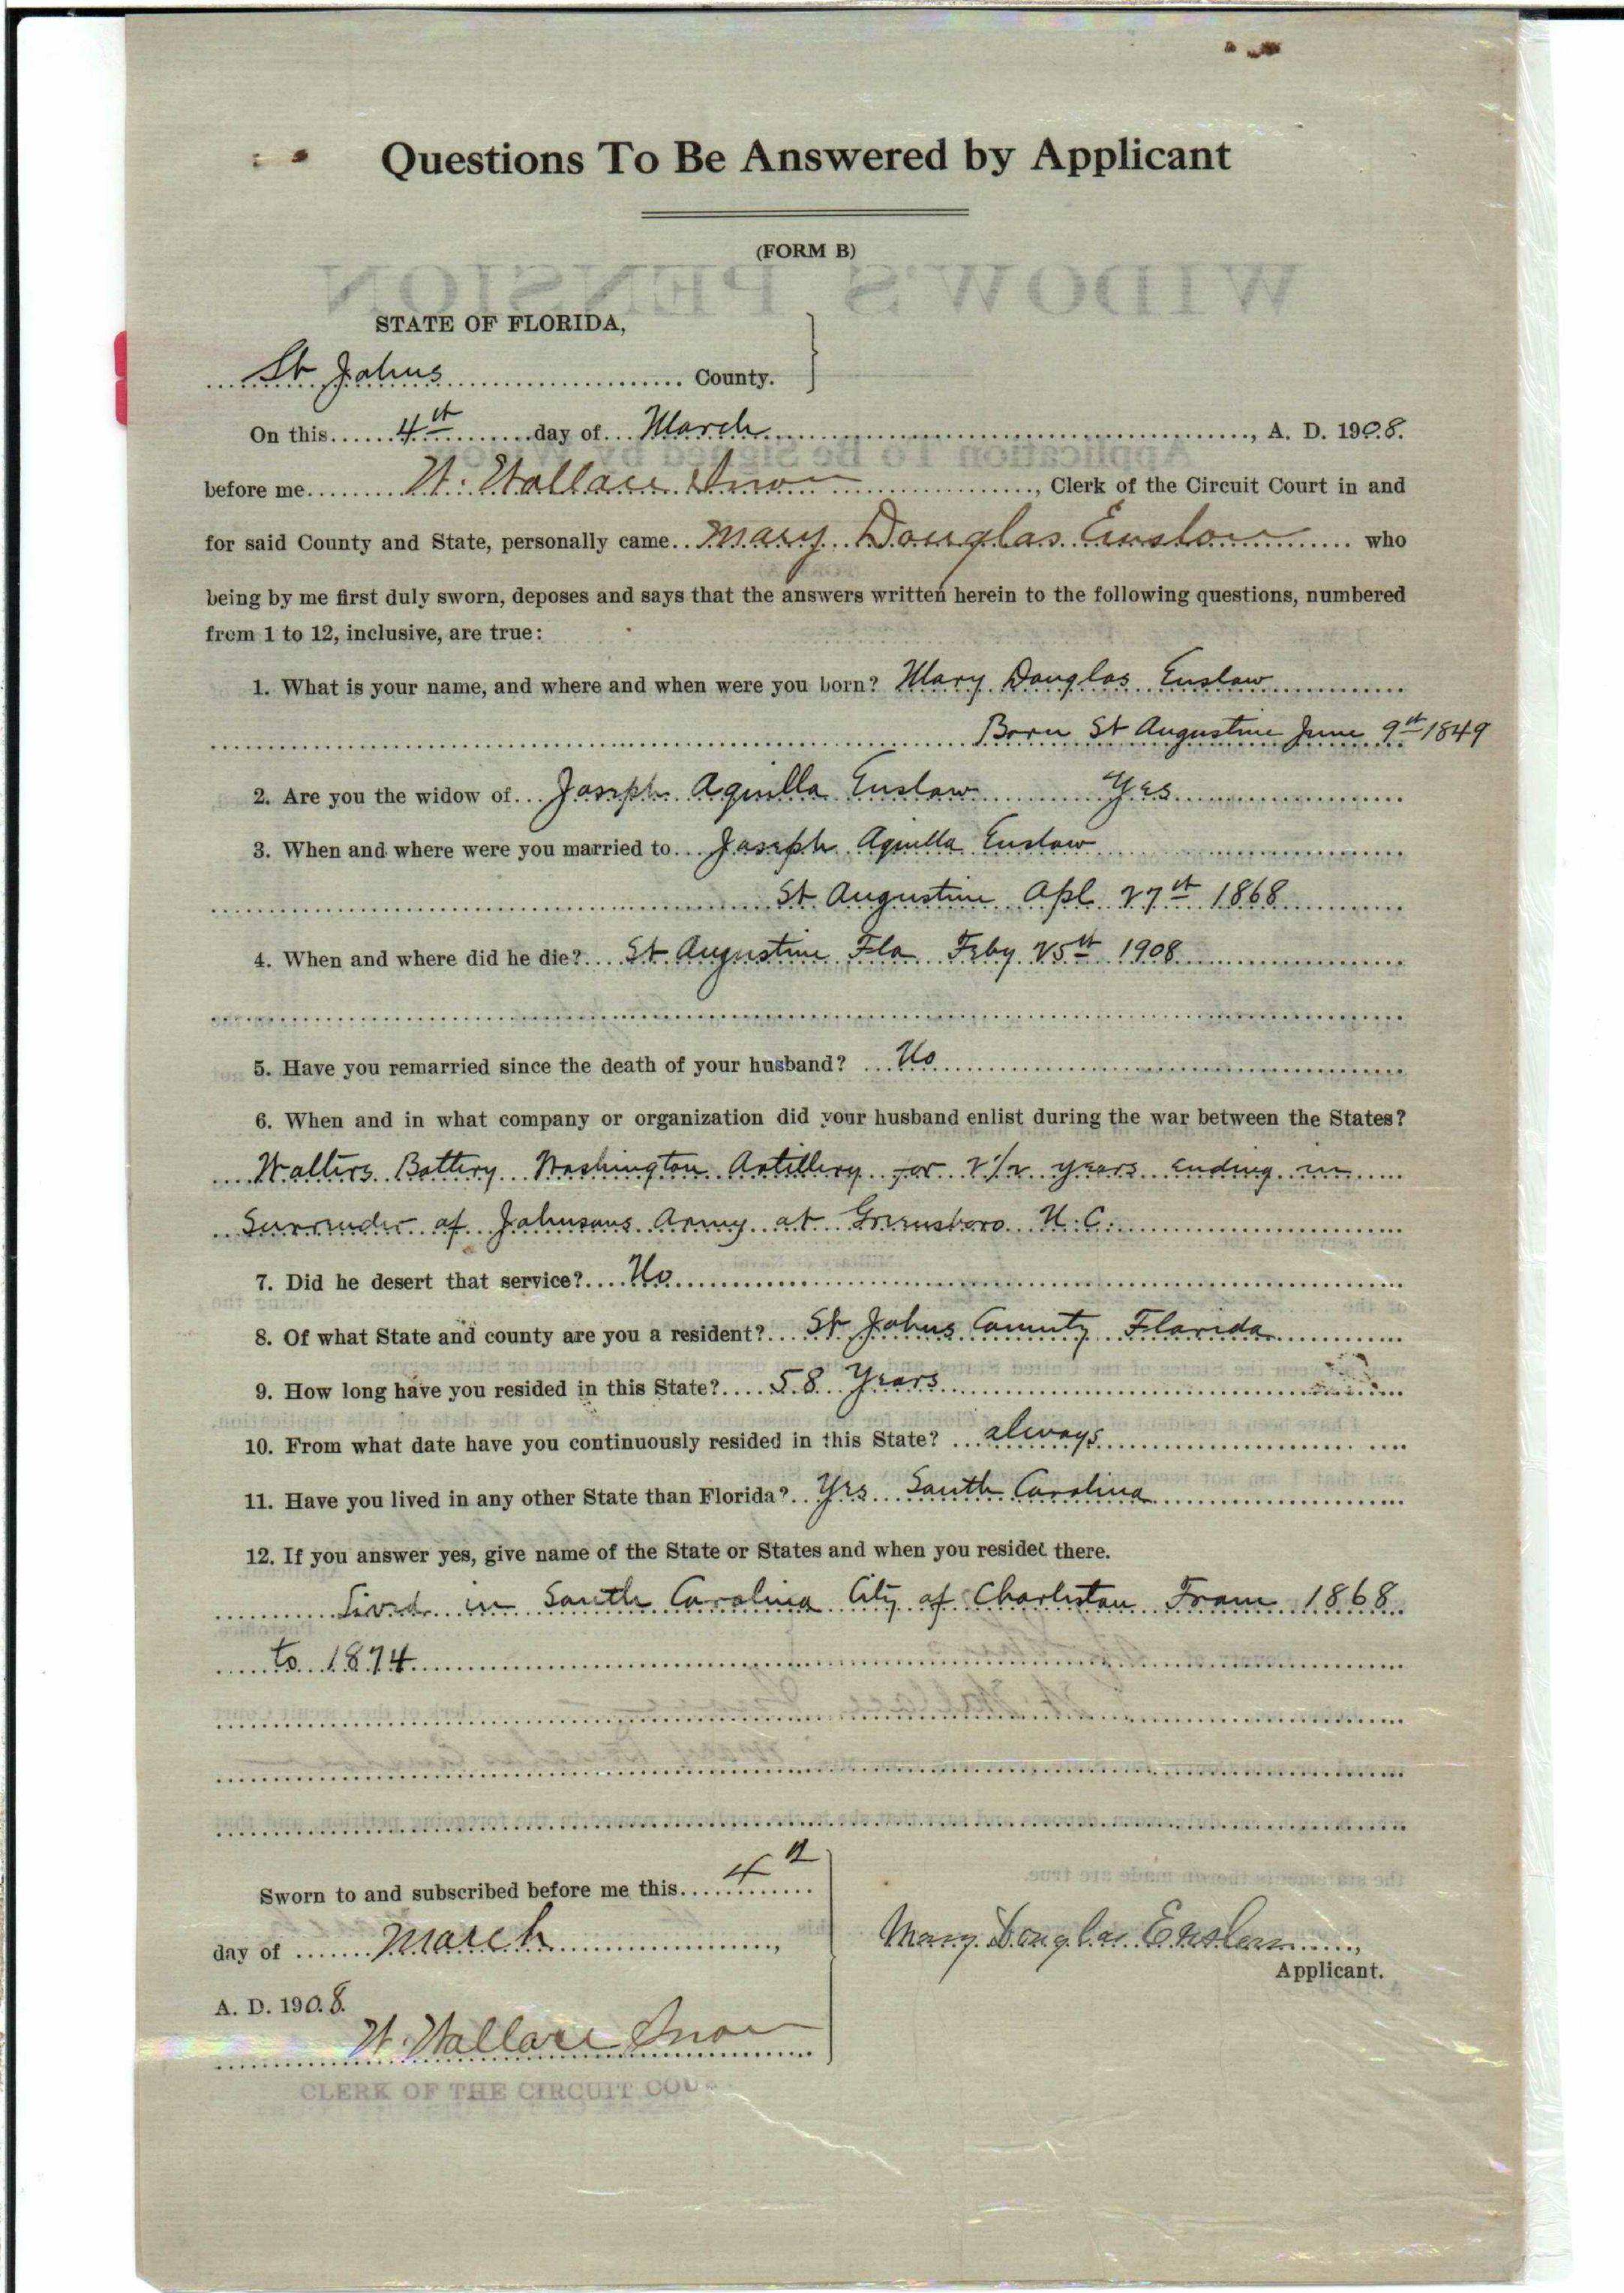 Questions To Be Answered by Applicant
(FORM B)
STATE OF FLORIDA,
St Johns County.
On this 4th day of March, A. D. 1908.
before me W. Wallace Snow, Clerk of the Circuit Court in and
for said County and State, personally came Mary Douglas Enslow who
being by me first duly sworn, deposes and says that the answers written herein to the following questions, numbered
from 1 to 12, inclusive, are true:
1. What is your name, and where and when were you born? Mary Douglas Enslow
Born St Augustine June 9th 1849
2. Are you the widow of Joseph Aquilla Enslow Yes
3. When and where were you married to Joseph Aquilla Enslow
St Augustine Apl 27th 1868
4. When and where did he die? St Augustine Fla Feby 25th 1908
5. Have you remarried since the death of your husband? No
6. When and in what company or organization did your husband enlist during the war between the States?
Walters Battery Washington Artillery for 2 1/2 years ending in
Surrender of Johnsons Army at Greensboro N. C.
7. Did he desert that service? No
8. Of what State and county are you a resident? St Johns County Florida
9. How long have you resided in this State? 58 Years
10. From what date have you continuously resided in this State? always
11. Have you lived in any other State than Florida? Yes South Carolina
12. If you answer yes, give name of the State or States and when you resided there.
Lived in South Carolina City of Charleston From 1868
to 1874
Sworn to and subscribed before me this 4th
day of March,
A. D. 1908.
W. Wallace Snow
CLERK OF THE CIRCUIT COU
Mary Douglas Enslow,
Applicant.